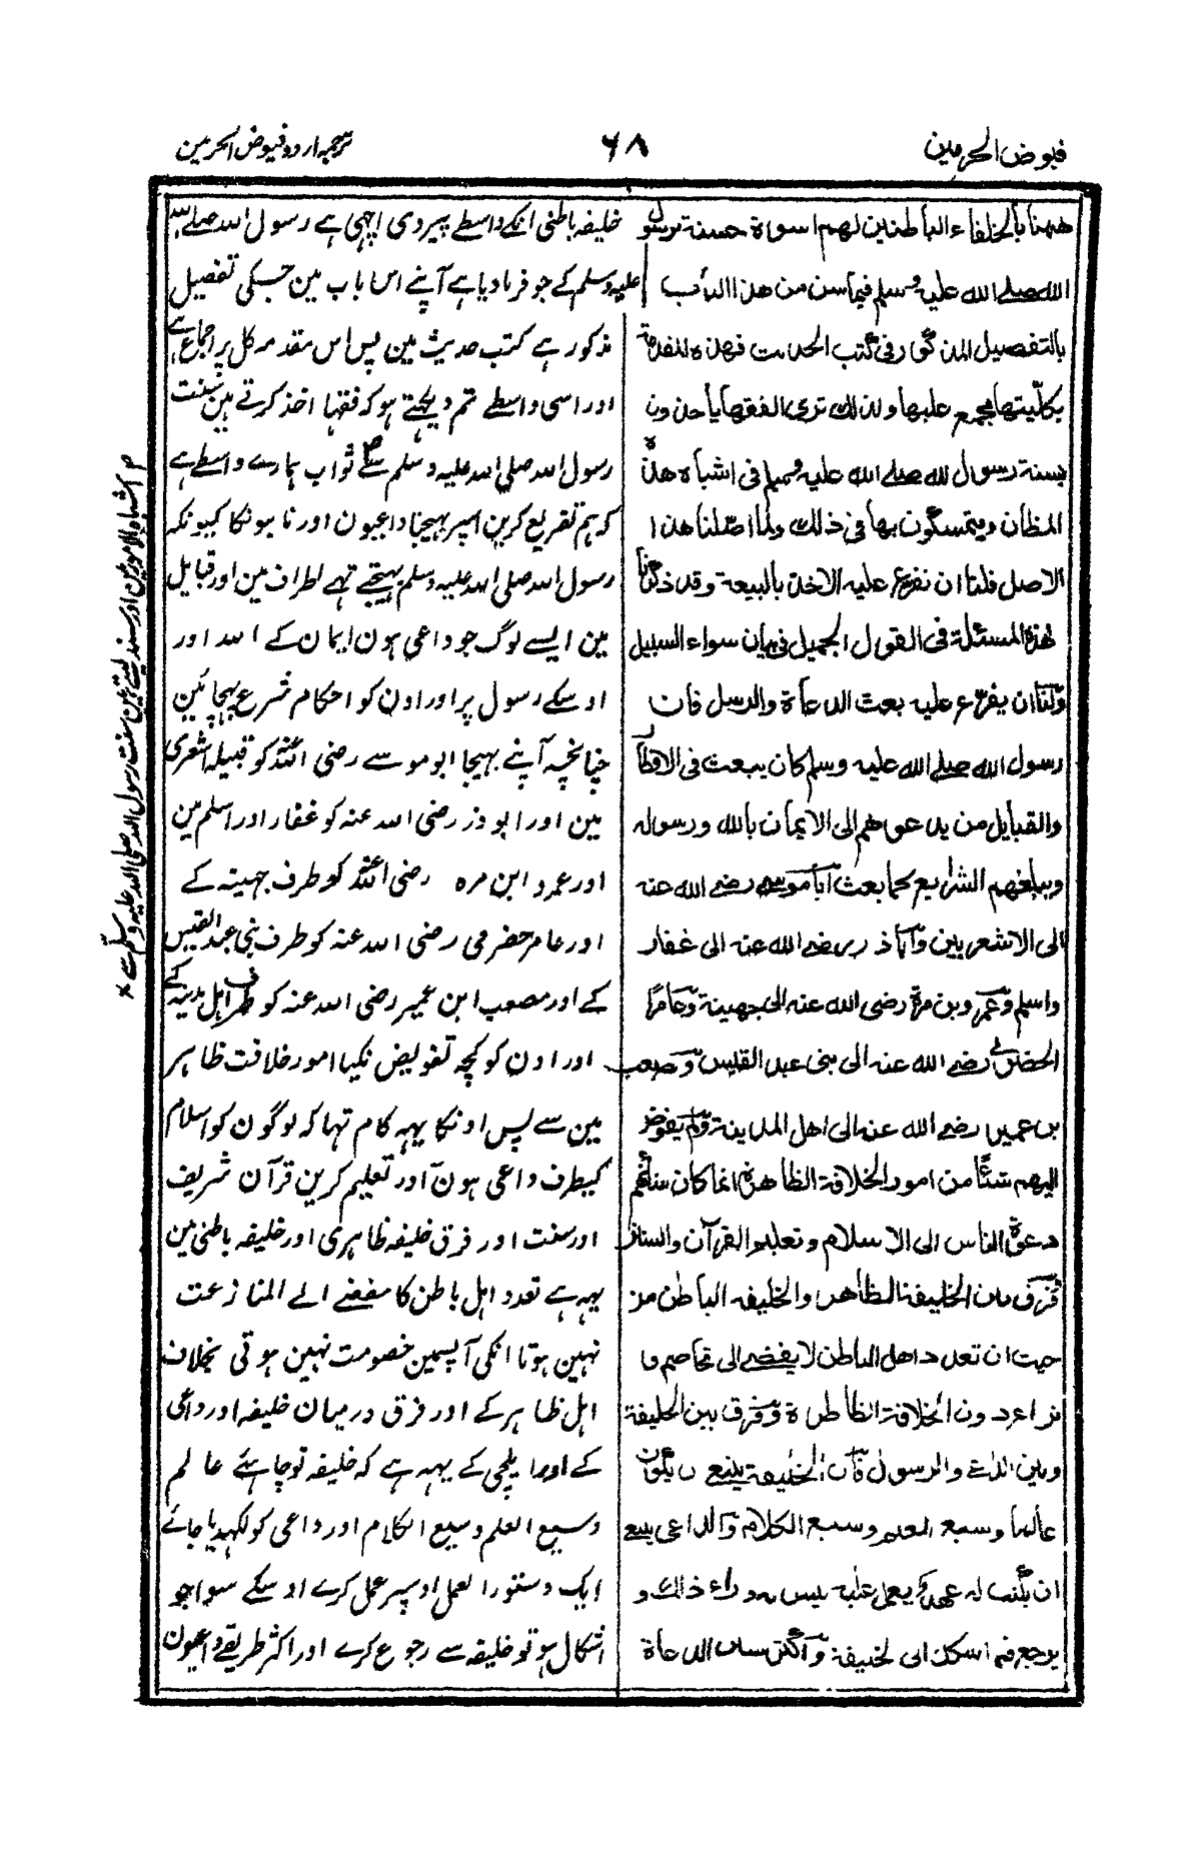 فيوض الحرمين
٦٨
ترجمہ اردو فیوض الحرمین
ههنا بالخلفاء الباطنين لهم اسوة حسنة برسول
الله صلے الله عليه وسلم فيما سن من هذا الباب
بالتفصيل المذكور فى كتب الحديث فهذه المقدمة
بكليتها مجمع عليها ولذلك ترى الفقهاء ياخذون
بسنة رسول لله صلے الله عليه وسلم فى اشباه هذه
المظان ويتمسكون بها فى ذلك ولما اصلنا هذا
الاصل فلنا ان نفرع عليه الاخذ بالبيعة وقد ذكرنا
هذه المسئلة فى القول الجميل فى بيان سواء السبيل
ولنا ان يفرع عليه بعث الدعاة والرسل فان
رسول الله صلے الله عليه وسلم كان يبعث فى الاقطار
والقبايل من يدعوهم الى الايمان بالله ورسوله
ويبلغهم الشرايع كما بعث ابا موسى رضے الله عنه
الى الاشعريين وابا ذر رضے الله عنه الى غفار
واسلم وعمرو بن مرة رضى الله عنه الى جهينة وعامرا
الحضرمى رضے الله عنه الى بنى عبد القيس ومصعب
بن عمير رضے الله عنه الى اهل المدينة ولم يفوض
اليهم شئا من امور الخلافة الظاهرة انما كان شانهم
دعوة الناس الى الاسلام وتعليم القرآن والسنة
فرق بين الخليفة الظاهر والخليفه الباطن من
حيث ان تعدد اهل الباطن لا يفضے الى تخاصم و
نزاع دون الخلافة الظاهرة وفرق بين الخليفة
وبين الداعے والرسول فان الخليفة ينبغى ان يكون
عالما وسيع العلم وسيع الكلام والداعى يسع
ان يكتب له عهد يعمل عليه ليس له وراء ذلك و
يرجع فيما اشكل الى الخليفة واكثر شان الدعاة
خلیفہ باطنی انکے واسطے پیروی اچھی ہے رسول اللہ صلے اللہ
علیہ وسلم کے جو فرمادیا ہے آپنے اس باب مین جسکی تفصیل
مذکور ہے کتب حدیث مین پس اس مقدمہ کل پر اجماع ہے
اور اسی واسطے تم دیکھتے ہو کہ فقہا اخذ کرتے ہین سنت
رسول اللہ صلی اللہ علیہ وسلم سے م تواب ہمارے واسطے ہے
کہ ہم تفریع کرین اسپر بھیجنا داعیون اور نائبونکا کیونکہ
رسول اللہ صلی اللہ علیہ وسلم بھیجتے تھے اطراف مین اور قبایل
مین ایسے لوگ جو داعی ہون ایمان کے اللہ اور
اوسکے رسول پر اور اون کو احکام شرع پہچائین
چنانچہ آپنے بھیجا ابو موسے رضی اللہ عنہ کو قبیلہ اشعری
مین اور ابوذر رضی اللہ عنہ کو غفار اور اسلم مین
اور عمرو ابن مرہ رضی اللہ عنہ کو طرف جہینہ کے
اور عامر حضرمی رضی اللہ عنہ کو طرف بنی عبد القیس
کے اور مصعب ابن عمیر رضی اللہ عنہ کو طرف اہل مدینہ کے
اور اون کو کچھ تفویض نکیا امور خلافت ظاہر
مین سے پس اونکا یہہ کام تھا کہ لوگون کو اسلام
کیطرف داعی ہون اور تعلیم کرین قرآن شریف
اور سنت اور فرق خلیفہ ظاہری اور خلیفہ باطنی مین
یہہ ہے تعدد اہل باطن کا مفضے الے المنازعت
نہین ہوتا انکی آپسمین خصومت نہین ہوتی بخلاف
اہل ظاہر کے اور فرق درمیان خلیفہ اور داعی
کے اور ایلچی کے یہہ ہے کہ خلیفہ تو چاہئے عالم
وسیع العلم وسیع الکلام اور داعی کو لکھدیا جائے
ایک دستور العمل اوسپر عمل کرے اوسکے سوا جو
اشکال ہو تو خلیفہ سے رجوع کرے اور اکثر طریقے داعیون
م اشباہ والامور مین اور سند لیتے ہین سنت رسول اللہ صلی اللہ علیہ وسلم سے